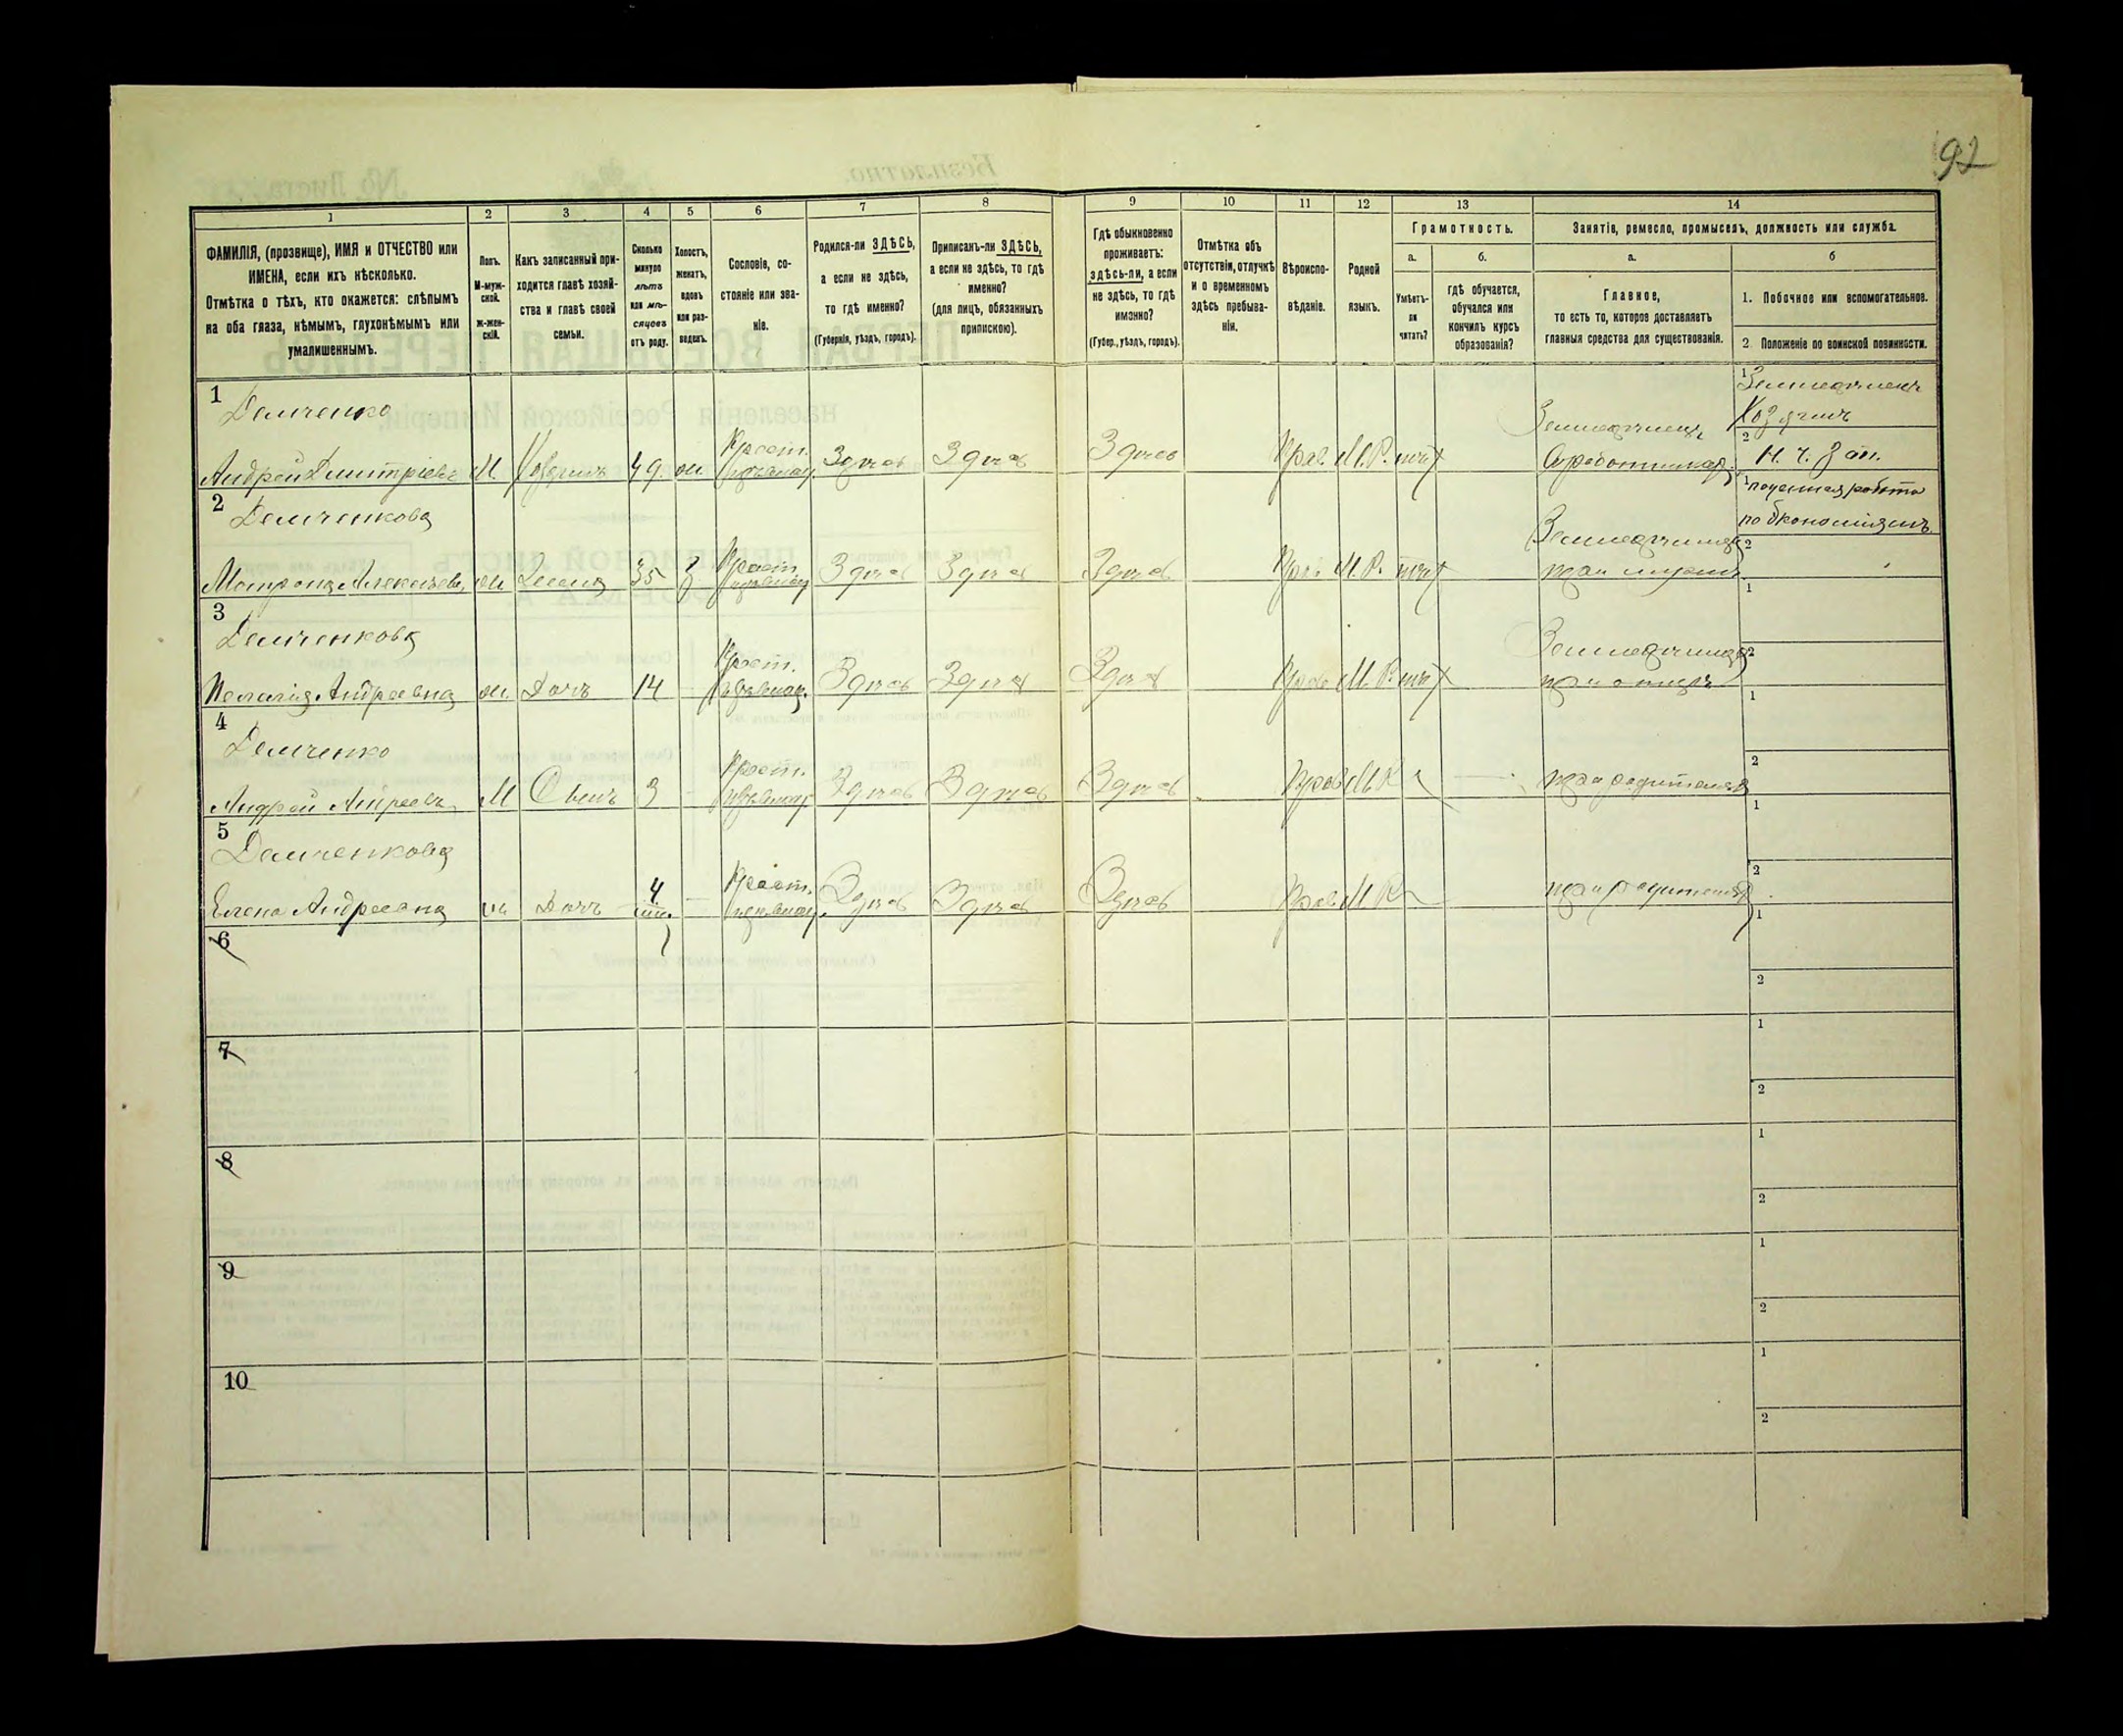 92
1 2 3 4 5 6 7 8 9 10 11 12 13 14
ФАМИЛІЯ, (прозвище), ИМЯ и ОТЧЕСТВО или
ИМЕНА, если ихъ нѣсколько.
Отмѣтка о тѣхъ, кто окажется: слѣпымъ
на оба глаза, нѣмымъ, глухонѣмымъ или
умалишеннымъ.
Полъ.
М-муж-
ской.
ж-жен-
скій.
Какъ записанный при-
ходится главѣ хозяй-
ства и главѣ своей
семьи.
Сколько
минуло
лѣтъ
или мѣ-
сяцевъ
отъ роду.
Холостъ,
женатъ,
вдовъ
или раз-
веденъ.
Сословіе, со-
стояніе или зва-
ніе.
Родился-ли ЗДѢСЬ,
а если не здѣсь,
то гдѣ именно?
(Губернія, уѣздъ, городъ).
Приписанъ-ли ЗДѢСЬ,
а если не здѣсь, то гдѣ
именно?
(для лицъ, обязанныхъ
припискою).
Гдѣ обыкновенно
проживаетъ:
здѣсь-ли, а если
не здѣсь, то гдѣ
именно?
(Губер., уѣздъ, городъ).
Отмѣтка объ
отсутствіи, отлучкѣ
и о временномъ
здѣсь пребыва-
ніи.
Вѣроиспо-
вѣданіе.
Родной
языкъ.
Грамотность.
а.
Умѣетъ-
ли
читать?
б.
гдѣ обучается,
обучался или
кончилъ курсъ
образованія?
Занятіе, ремесло, промыселъ, должность или служба.
а.
Главное,
то есть то, которое доставляетъ
главныя средства для существованія.
б
1. Побочное или вспомогательное.
2. Положеніе по воинской повинности.
1
Демченко
Андрей Дмитріевъ М. Хозяинъ 49. ж. Крест. Здѣсь Здѣсь Здѣсь Прав. М.Р. нѣт
Земледѣлецъ
1 Земледѣлецъ
Хозяинъ
2 Н. Ч. Зап.
2
Демченкова
Матрона Алексѣева ж. Жена 35 Крест. Здѣсь Здѣсь Здѣсь Прав М.Р. нѣт
Земледѣлица
при мужѣ
1 поденная работа
по экономіямъ
2
3
Демченкова
Пелагія Андреевна ж. Дочь 14 Крест. Здѣсь Здѣсь Здѣсь Прав М.Р. нѣт
Земледѣлица
при отцѣ
1
2
4
Демченко
Андрей Андреевъ М Сынъ 3 Крест. Здѣсь Здѣсь Здѣсь Прав М.Р.
при родителях
1
2
5
Демченкова
Елена Андреевна ж Дочь 4 Крест. Здѣсь Здѣсь Здѣсь Прав М.Р.
при родителях
1
2
6
1
2
7
1
2
8
1
2
9
1
2
10
1
2